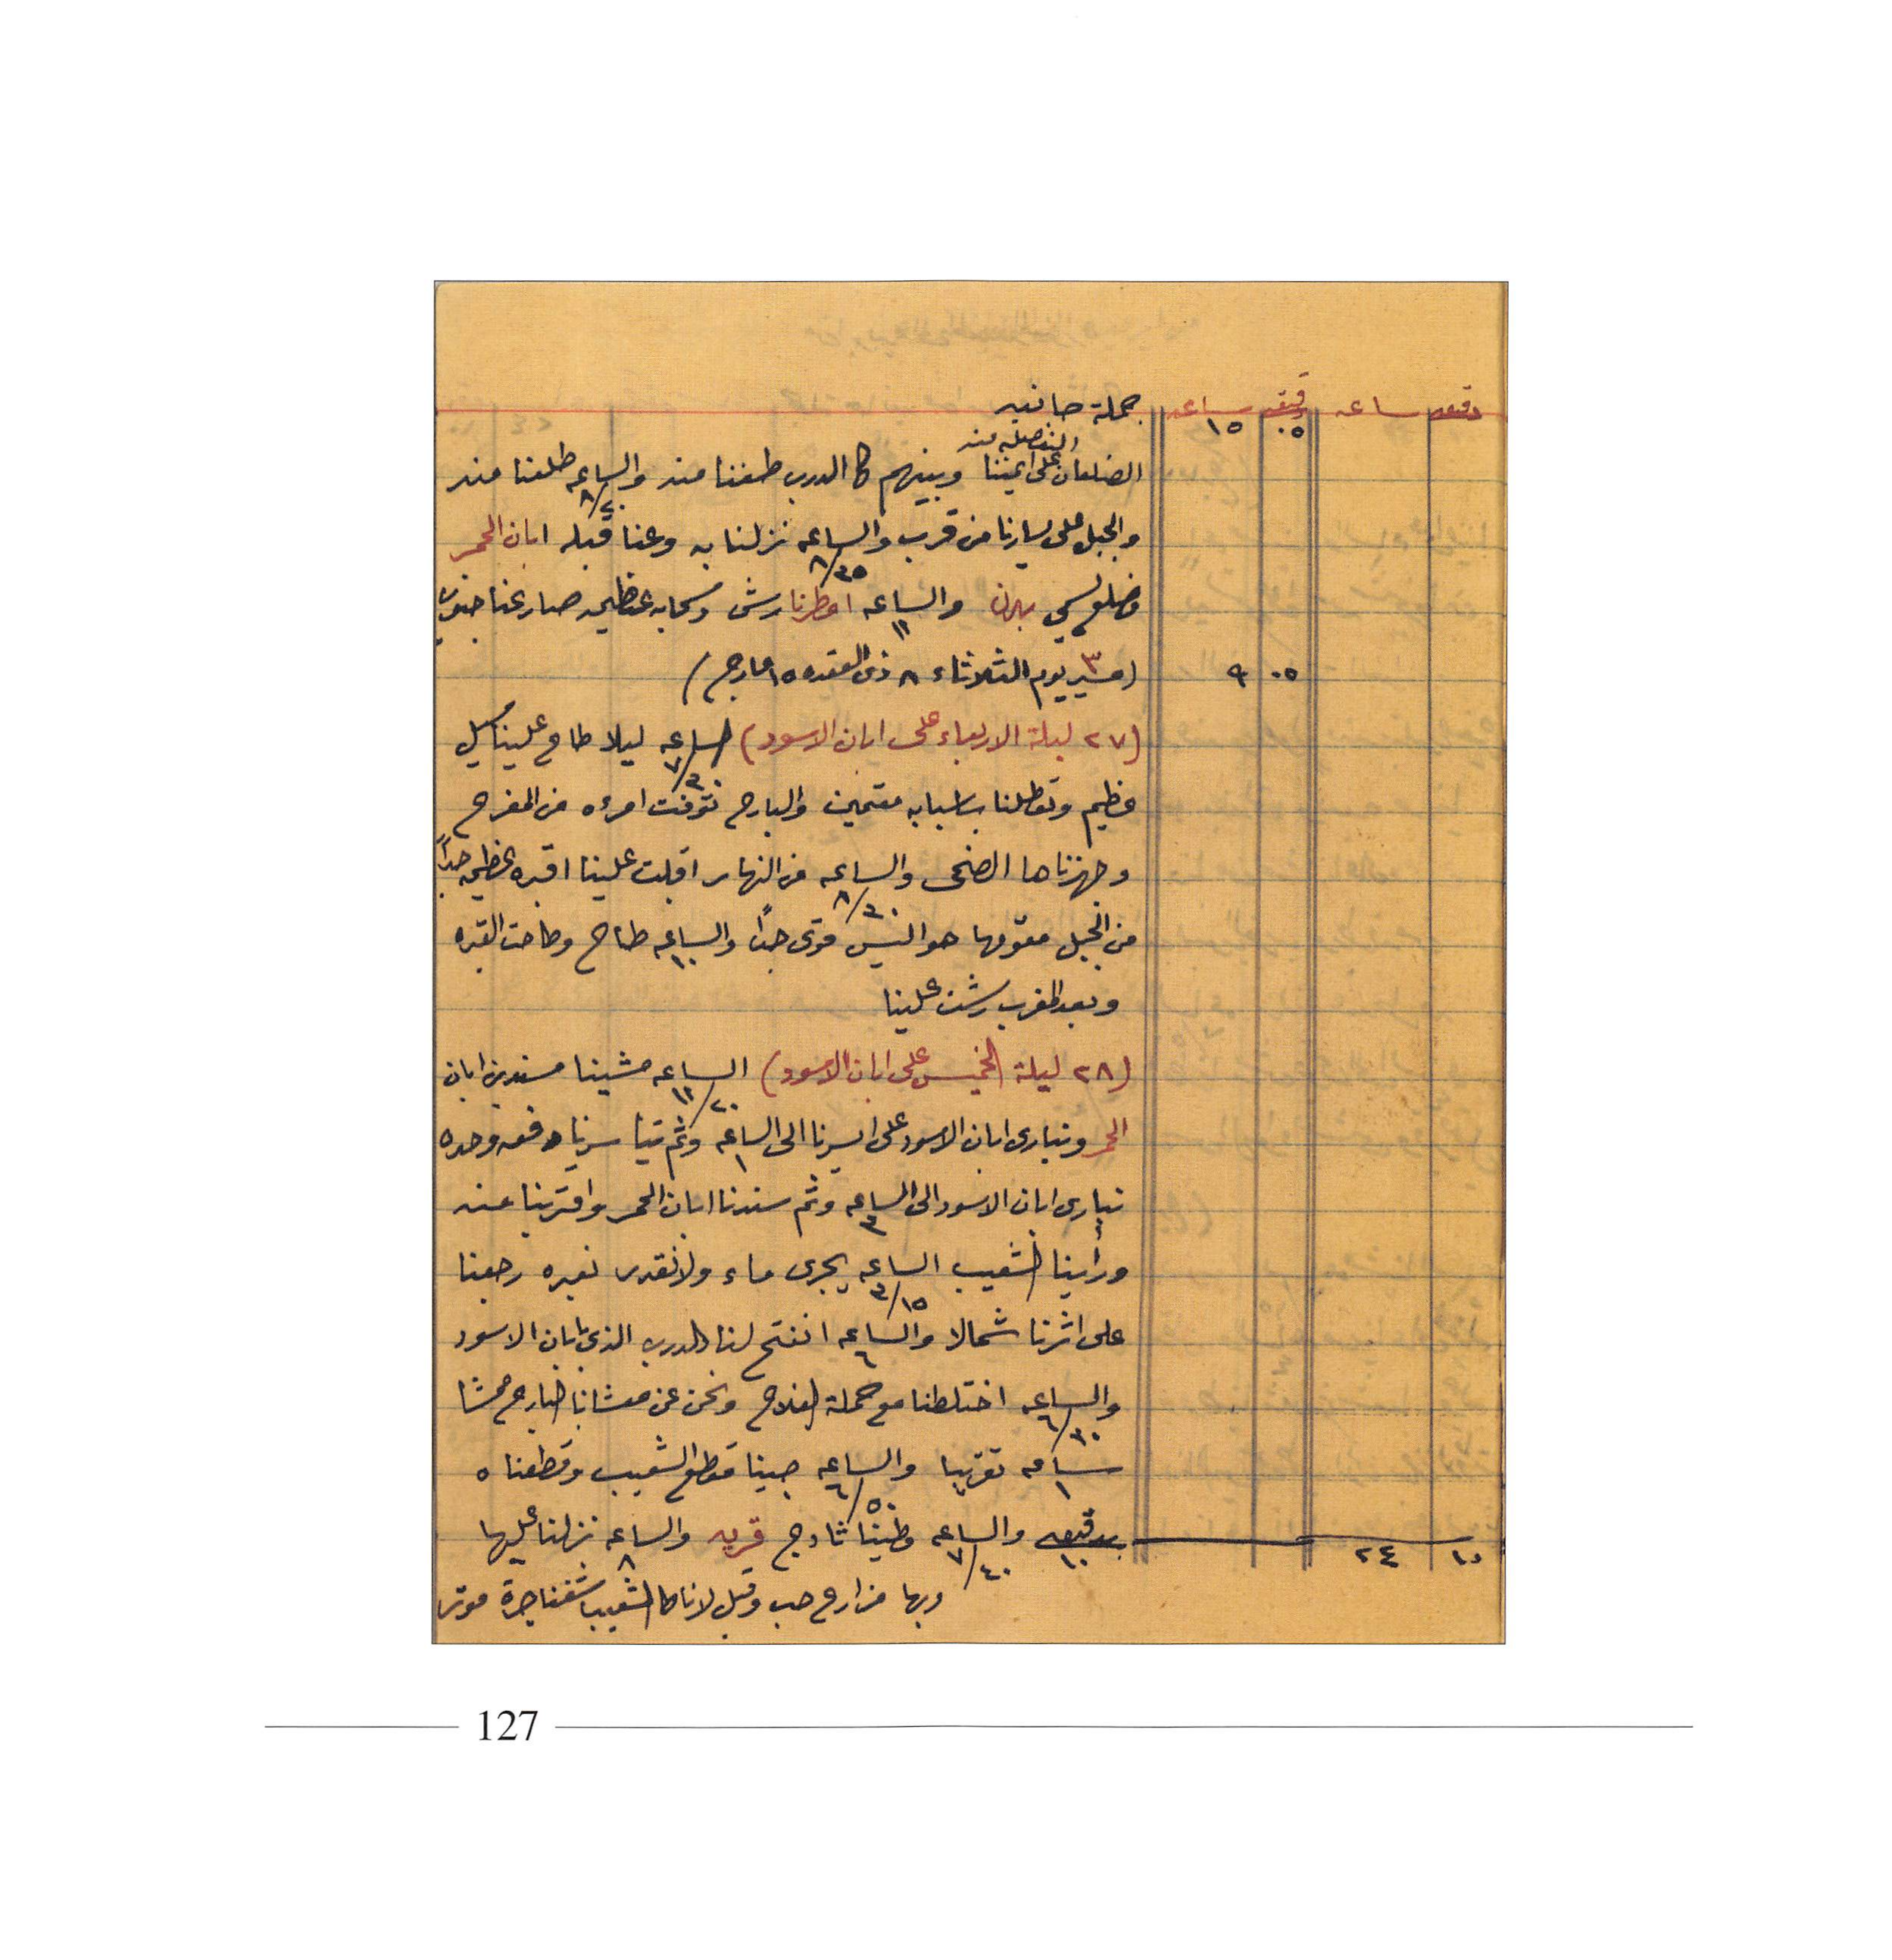 دقيقه ساعه دقيقه ساعه جملة جانبه
٠٥ ١٥
المنفصله منه
الضلعان على ايمننا وبينهم كا الدرب طعننا منه والساعه ٨/٢٠ طلعنا منه
والجبل على يسارنا من قرب والساعه ٨/٣٥ نزلنا به وعنا قبله ابان الحمر
وضلع يسمى والساعه ١١ امطرنا رش وسحابه عظيمه صارعنا جنوب
(٣ مسير يوم الثلاثاء ٨ ذى القعده ١٥ مارج) ٠٥ ٩
(٢٧ ليلة الاربعاء على ابان الاسود) الساعه ٧/٣٠ ليلا طاح علينا سيل
عظيم وتعطلنا باسبابه مقيمين والبارح توفت امرءه من المفرح
وجهزناها الضحى والساعه ٨/٣٠ من النهار اقبلت علينا اقبره عظيمه جداً
من الجبل مقومها هوا ليس قوى جداً والساعه ١٠ طاح وطاحت القبره
وبعد المغرب رشت علينا
(٢٨ ليلة الخميس على ابان الاسود) الساعه ١١/٢٠ مشينا مسندين ابان
الحمر ونبارى ابان الاسود على ايسرنا الى الساعه ١ وثم تياسرنا دفعه وحده
نبارى ابان الاسود الى الساعه ٣ وثم سندنا ابان الحمر واقتربنا عنه
ورأينا الشعيب الساعه ٣/١٥ يجرى ماء ولا نقدر نعبره رجعنا
على اثرنا شمالا والساعه ٦ انفتح لنا الدرب الذى بابان الاسود
والساعه ٦/٣٠ اختلطنا مع حملة الفلاح ونحن عن معشانا البارح ممشا
ساعه ١ تقريبا والساعه ٦/٥٠ جينا مقطع الشعيب وقطعناه
بدقيقه ١٠ والساعه ٧/٤٠ وطينا ثادج قريه والساعه ٨ نزلنا عليها ١٠ ٢٤
وبها مزارع حب وقبل لانا كا الشعيب شفنا جرة موتر
127